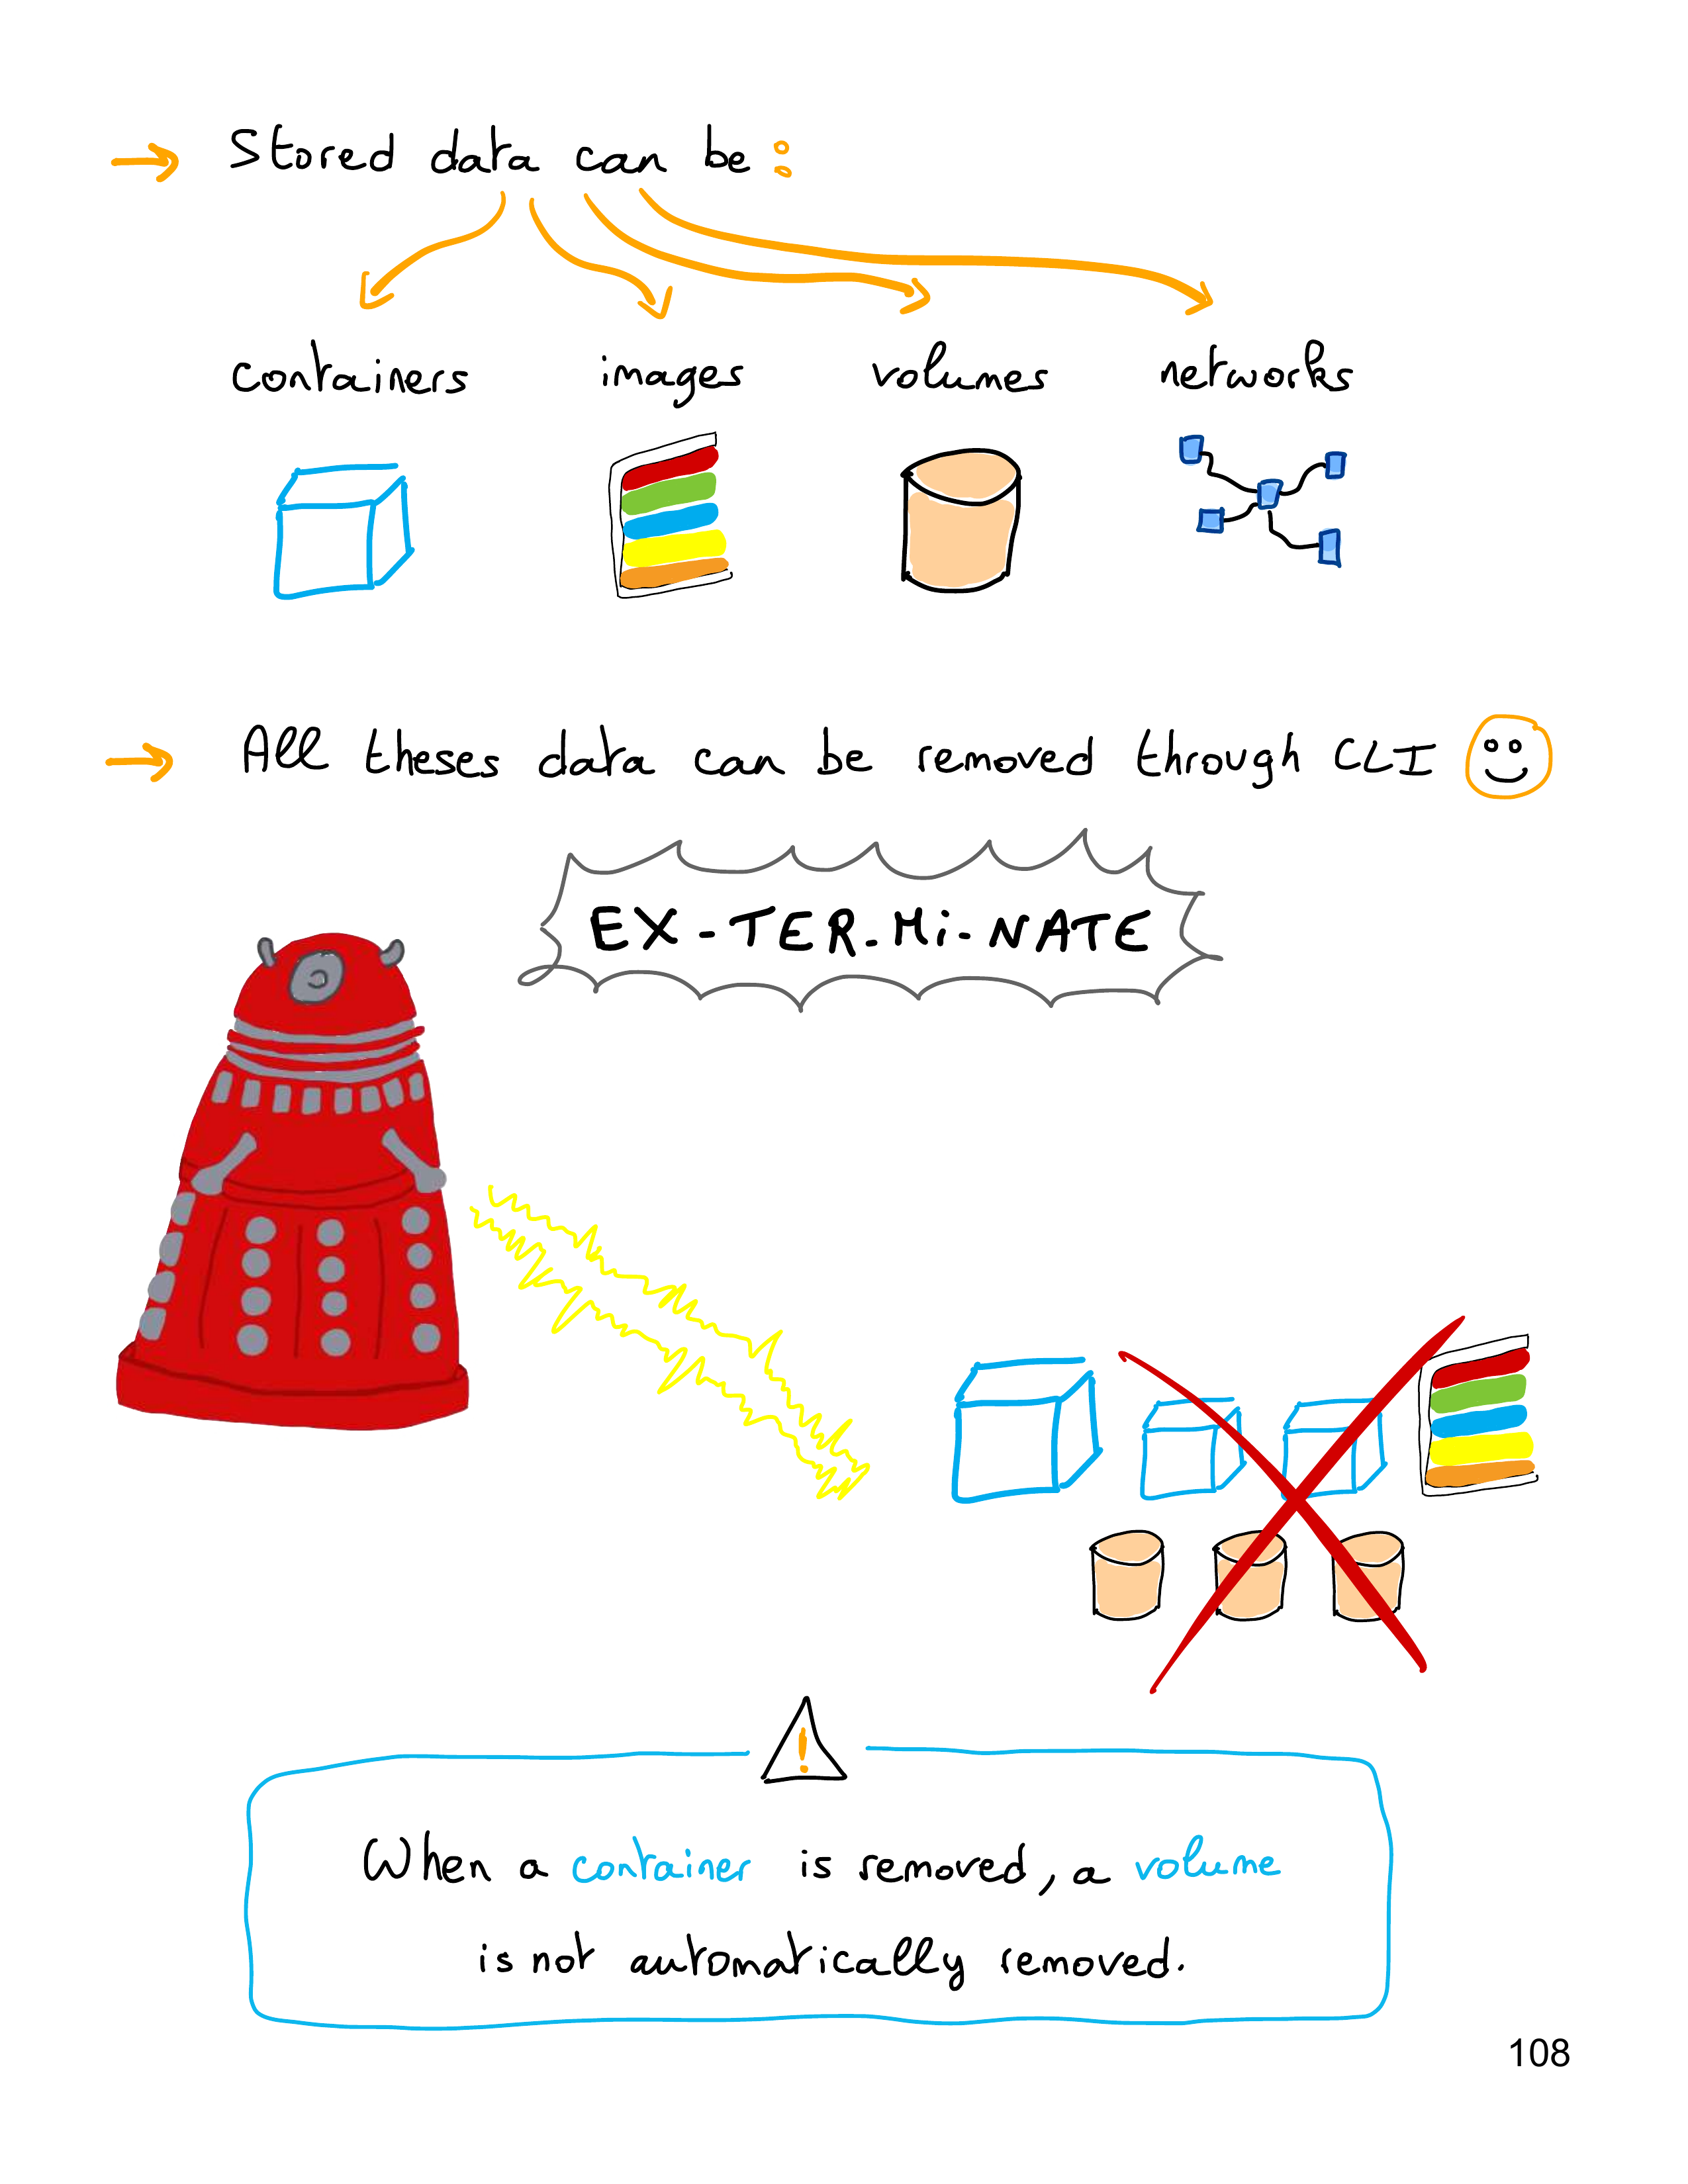 → Stored data can be :
containers images volumes networks
→ All theses data can be removed through CLI
EX-TER-Mi-NATE
!
When a container is removed, a volume
is not automatically removed.
108